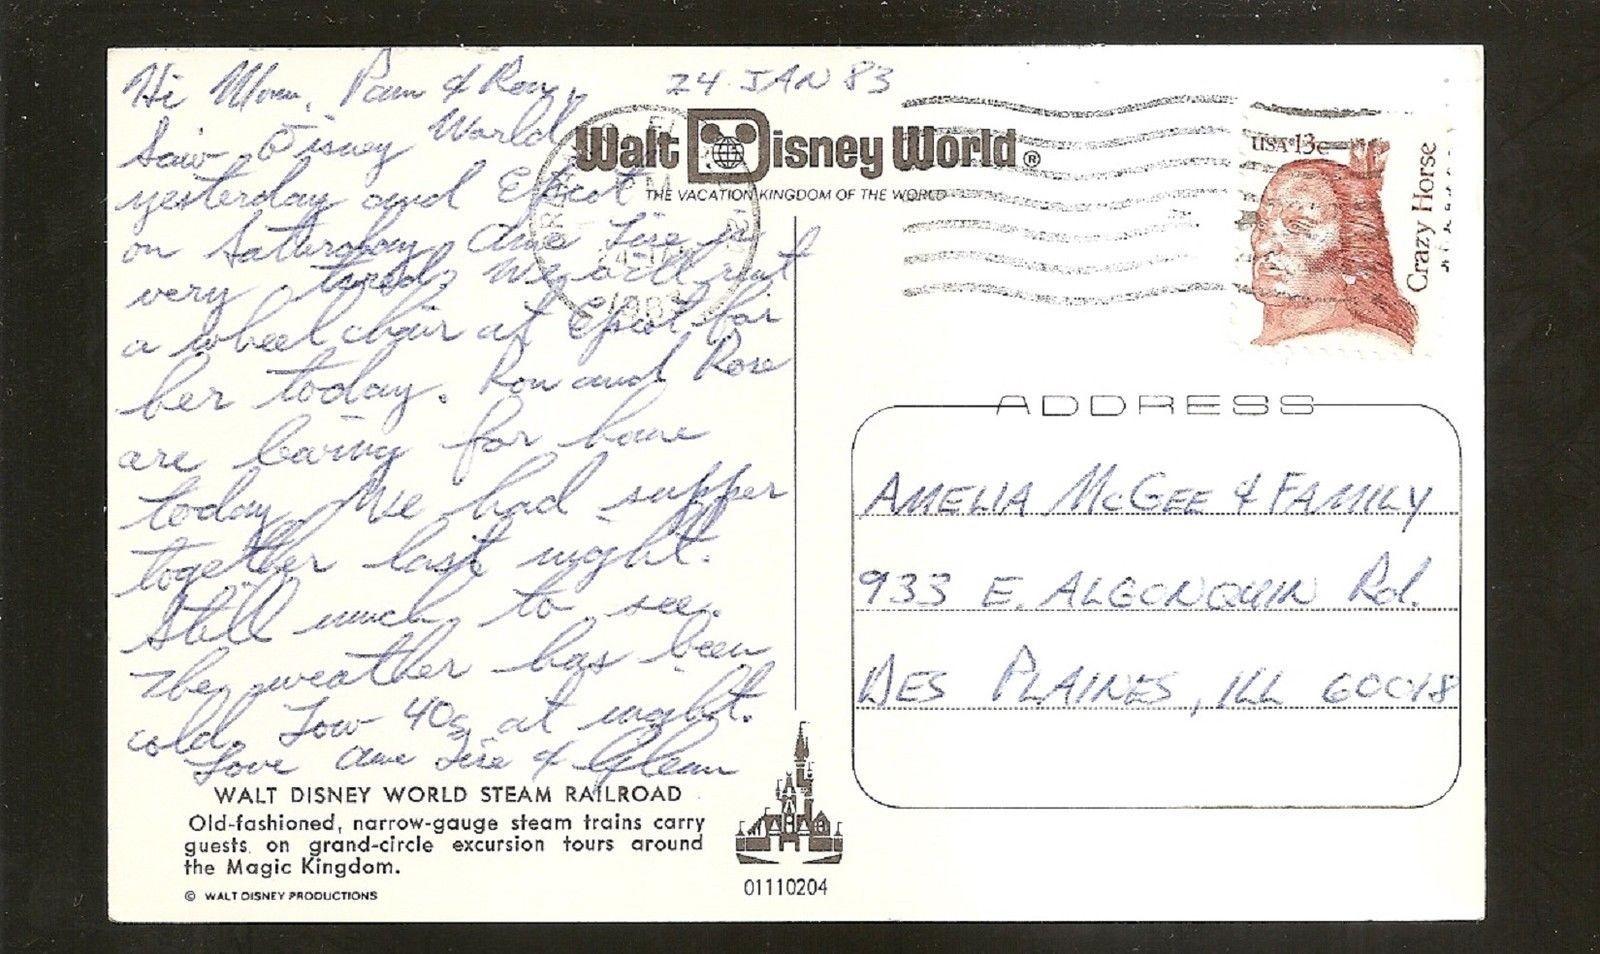 24 JAN 83
Hi Mom, Pam & Ray,
Saw Disney World
yesterday and Epcot
on Satterday. Ame Lise is
very tired. We will rent
a wheel chair at Epcot for
her today. Ron and Rose
are leaving for home
today. We had supper
together last night.
Still much to see.
The weather has been
cold. Low 40s at night.
Love Ame Lise & Glenn
WALT DISNEY WORLD STEAM RAILROAD
Old-fashioned, narrow-gauge steam trains carry
guests on grand-circle excursion tours around
the Magic Kingdom.
© WALT DISNEY PRODUCTIONS
Walt Disney World®
THE VACATION KINGDOM OF THE WORLD
1983
USA 13c
Crazy Horse
ADDRESS
AMELIA McGEE & FAMILY
933 E. ALGONQUIN Rd.
DES PLAINES, ILL 60018
01110204